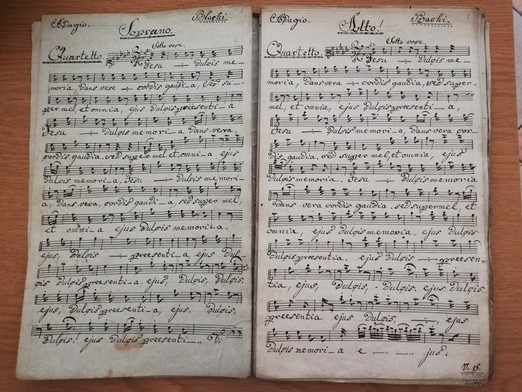 Adagio.
Soprano.
Quartetto.
Sotto voce.
Jesu — dulcis me-
moria, dans vera — cordis gaudi-a, sed su-
per mel et omnia, ejus dulcis presenti-a
Jesu — Dulcis memori-a dans vera,
cordis gaudia, sed super mel, et omni-a ejus
dulcis memori-a. Jesu — Dulcis memori-
a, dans vera, cordis gaudi-a, sed super mel,
et omni-a ejus dulcis memori-a.
ejus, dulcis — preesenti-a, ejus dul-
cis dulcis preesenti-a, ejus, dulcis, dulcis,
ejus, dulcis preesenti-a, ejus, dulcis,
dulcis! ejus dulcis preesenti-
Adagio.
Alto!
Quartetto.
Sotto voce.
Jesu — dulcis me-
moria, dans vera — cordis gaudia, sed super
mel, et omnia, ejus dulcis preesenti-a,
Jesu — Dulcis memori-a, dans vera cor-
dis gaudia, sed super mel, et omnia, ejus
dulcis memoria. Jesu — Dulcis memoria
dans vera cordis gaudia, sed super mel, et
omnia, ejus dulcis memoria, ejus dulcis
preesentia, ejus dulcis — preesen-
tia, ejus, dulcis, dulcis ejus dulcis
preesentia ejus dulcis, dulcis, ejus
dulcis memori-a e jus.